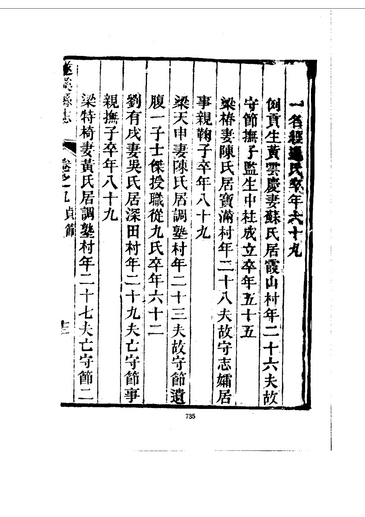 一名經
氏卒年六十九
例貢生黃雲慶妻蘇氏居霞山村年二十六夫故
守節撫子監生中柱成立卒年五十五
梁椿妻陳氏居寶滿村年二十八夫故守志孀居
事親鞠子卒年八十九
梁天申妻陳氏居調塾村年二十三夫故守節遺
腹一子士傑授職從九氏卒年六十二
劉有成妻吳氏居深田村年二十九夫亡守節事
親撫子卒年八十九
梁特椅妻黃氏居調塾村年二十七夫亡守節二
遂溪縣志
卷之九
貞節
735